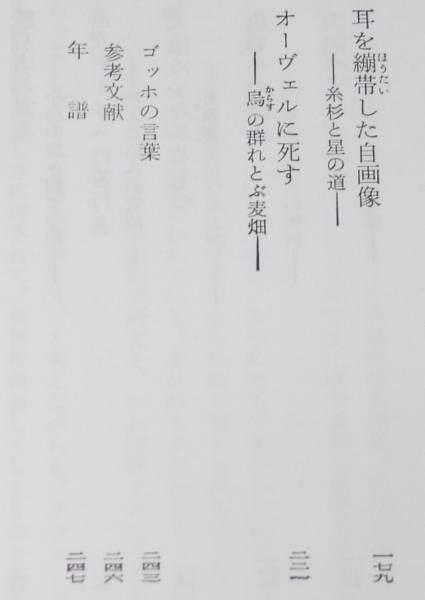 耳を繃帯した自画像 一七九
ほうたい
――糸杉と星の道――
オーヴェルに死す 二二一
――烏の群れとぶ麦畑――
からす
ゴッホの言葉 二四三
参考文献 二四六
年譜 二四七